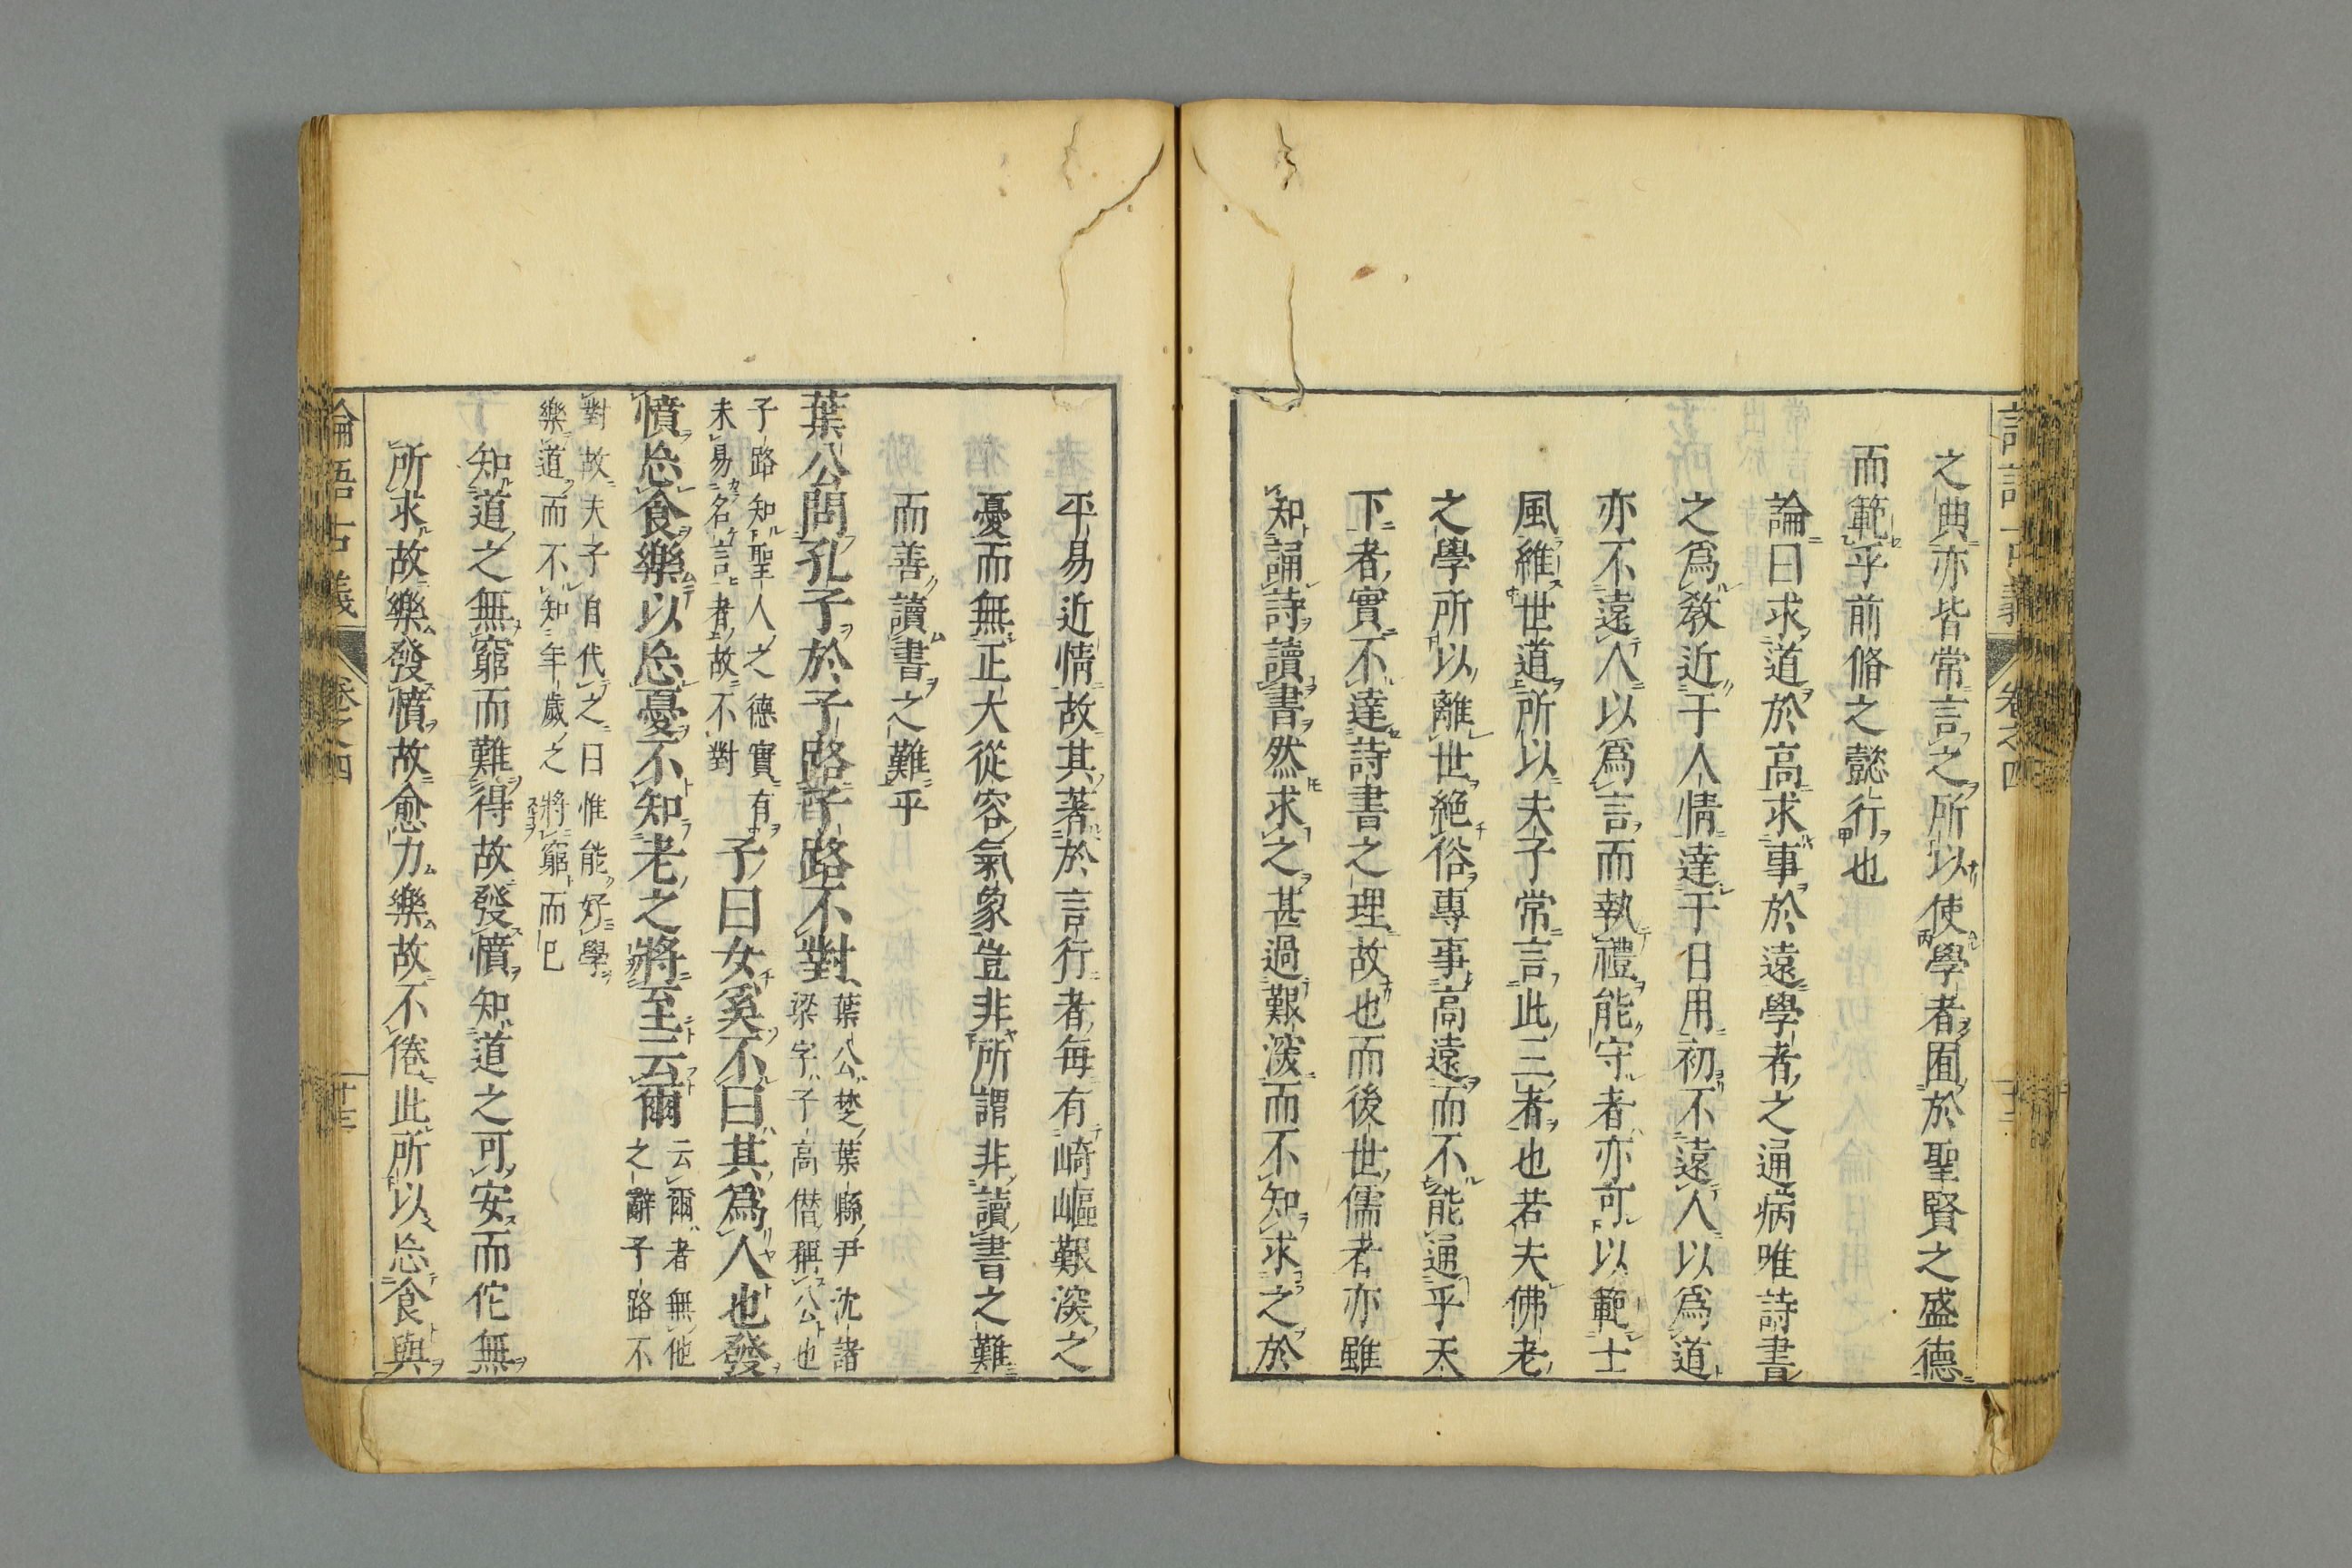 之典亦皆常言之所以使學者囿於聖賢之盛德
而範乎前脩之懿行也
論曰求道於高求事於遠學者之通病唯詩書
之爲教近于人情達于日用初不遠人以爲道
亦不遠人以爲言而執禮能守者亦可以範士
風維世道所以夫子常言此三者也若夫佛老
之學所以離世絶俗專事高遠而不能通乎天
下者實不達詩書之理故也而後世儒者亦雖
知誦詩讀書然求之甚過艱深而不知求之於
平易近情故其著於言行者每有崎嶇艱深之
憂而無正大從容氣象豈非所謂非讀書之難
而善讀書之難乎
葉公問孔子於子路子路不對 葉公楚葉縣尹沈諸
梁字子高僣稱公也
子路知聖人之德實有
未易名言者故不對 子曰女奚不曰其爲人也發
憤忘食樂以忘憂不知老之將至云爾 云爾者無他
之辭子路不
對故夫子自代之曰惟能好學
樂道而不知年歲之將窮而已
知道之無窮而難得故發憤知道之可安而佗無
所求故樂發憤故愈力樂故不倦此所以忘食與
論語古義 卷之四